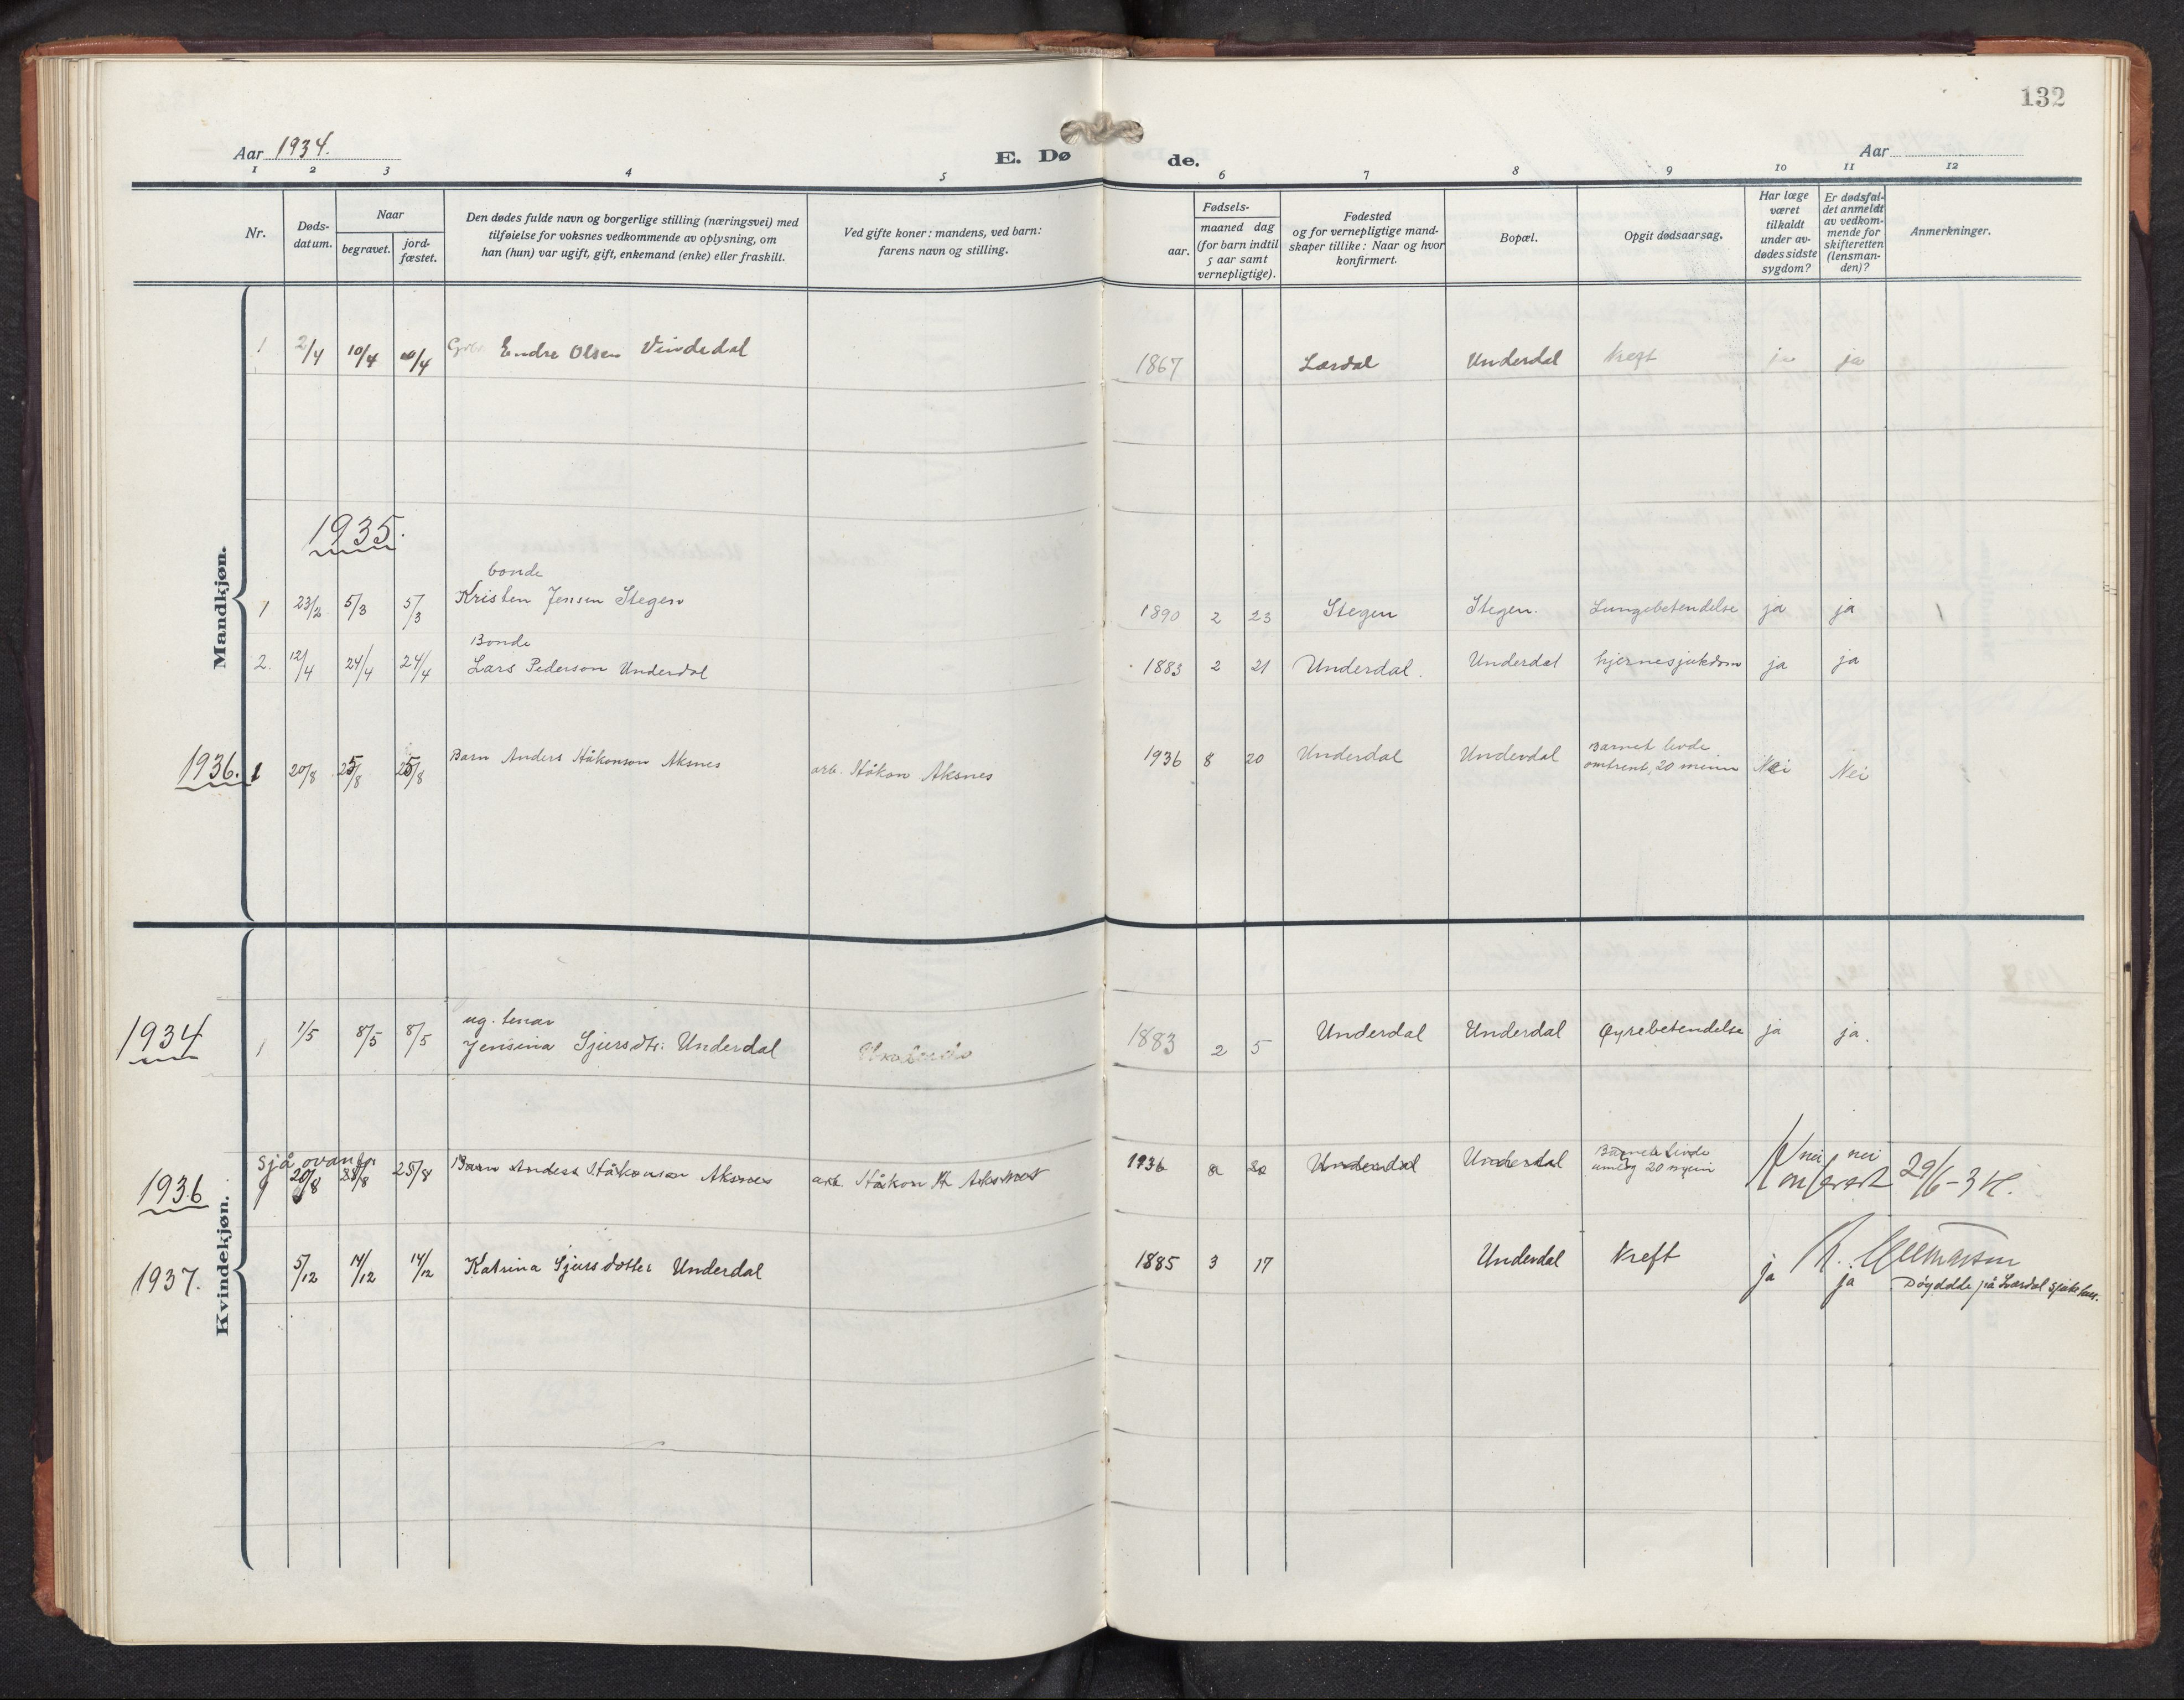 132
Aar 1934.
E. Døde.
Aar
1 2 3 4 5 6 7 8 9 10 11 12
Nr.
Døds-
datum.
Naar
begravet.
jord-
fæstet.
Den dødes fulde navn og borgerlige stilling (næringsvei) med
tilføielse for voksnes vedkommende av oplysning, om
han (hun) var ugift, gift, enkemand (enke) eller fraskilt.
Ved gifte koner: mandens, ved barn:
farens navn og stilling.
Fødsels-
aar.
maaned dag
(for barn indtil
5 aar samt
vernepligtige).
Fødested
og for vernepligtige mand-
skaper tillike: Naar og hvor
konfirmert.
Bopæl.
Opgit dødsaarsag.
Har læge
været
tilkaldt
under av-
dødes sidste
sygdom?
Er dødsfal-
det anmeldt
av vedkom-
mende for
skifteretten
(lensman-
den)?
Anmerkninger.
Mandkjøn.
1 2/4 10/4 10/4 Endre Olsen Vindedal 1867 Lærdal Underdal kreft ja ja
1935.
bonde
1 23/2 5/3 5/3 Kristen Jensen Stegen 1890 2 23 Stegen Stegen. Lungebetendelse ja ja
Bonde
2. 12/4 24/4 24/4 Lars Pederson Underdal 1883 2 21 Underdal. Underdal hjernesjukdom ja ja
Barnet levde
1936. 1 20/8 25/8 25/8 Barn Anders Håkonson Aksnes arb. Håkon Aksnes 1936 8 20 Underdal Underdal omtrent 20 minn Nei Nei
Kvindekjøn.
ug. tenar
1934 1 1/5 8/5 8/5 Jensina Sjursdtr. Underdal 1883 2 5 Underdal Underdal Øyrebetendelse ja ja.
sjå ovanfor
Barnet livde
1936 1 20/8 25/8 25/8 Barn Anders Håkonson Aksnes arb. Håkon Aksnes 1936 8 20 Underdal Underdal 20 minn nei nei
Konferert 29/6-3
1937. 5/12 14/12 14/12 Katrina Sjursdotter Underdal 1885 3 17 Underdal kreft ja ja
Døydde på Lærdal sjukehus.